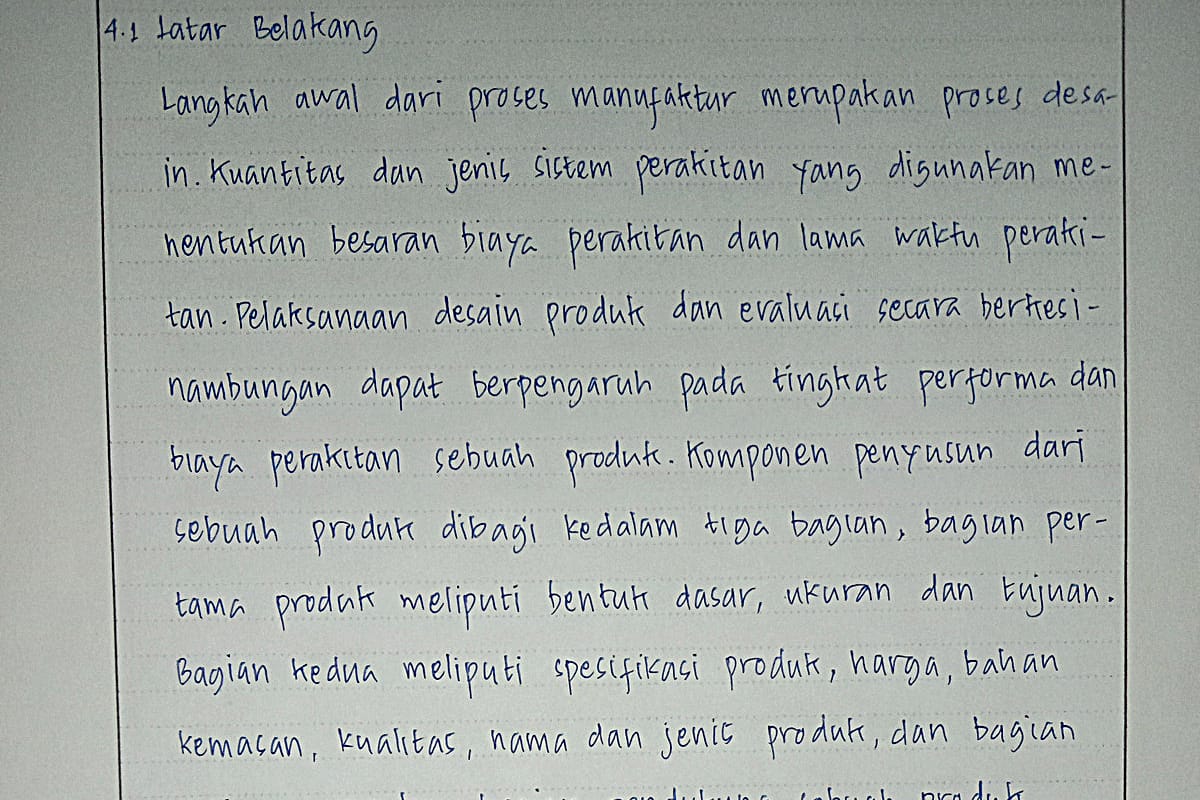 4.1 Latar Belakang
Langkah awal dari proses manufaktur merupakan proses desa-
in. Kuantitas dan jenis sistem perakitan yang digunakan me-
nentukan besaran biaya perakitan dan lama waktu peraki-
tan. Pelaksanaan desain produk dan evaluasi secara berkesi-
nambungan dapat berpengaruh pada tingkat performa dan
biaya perakitan sebuah produk. Komponen penyusun dari
sebuah produk dibagi kedalam tiga bagian, bagian per-
tama produk meliputi bentuk dasar, ukuran dan tujuan.
Bagian kedua meliputi spesifikasi produk, harga, bahan
kemasan, kualitas, nama dan jenis produk, dan bagian
sebuah produk